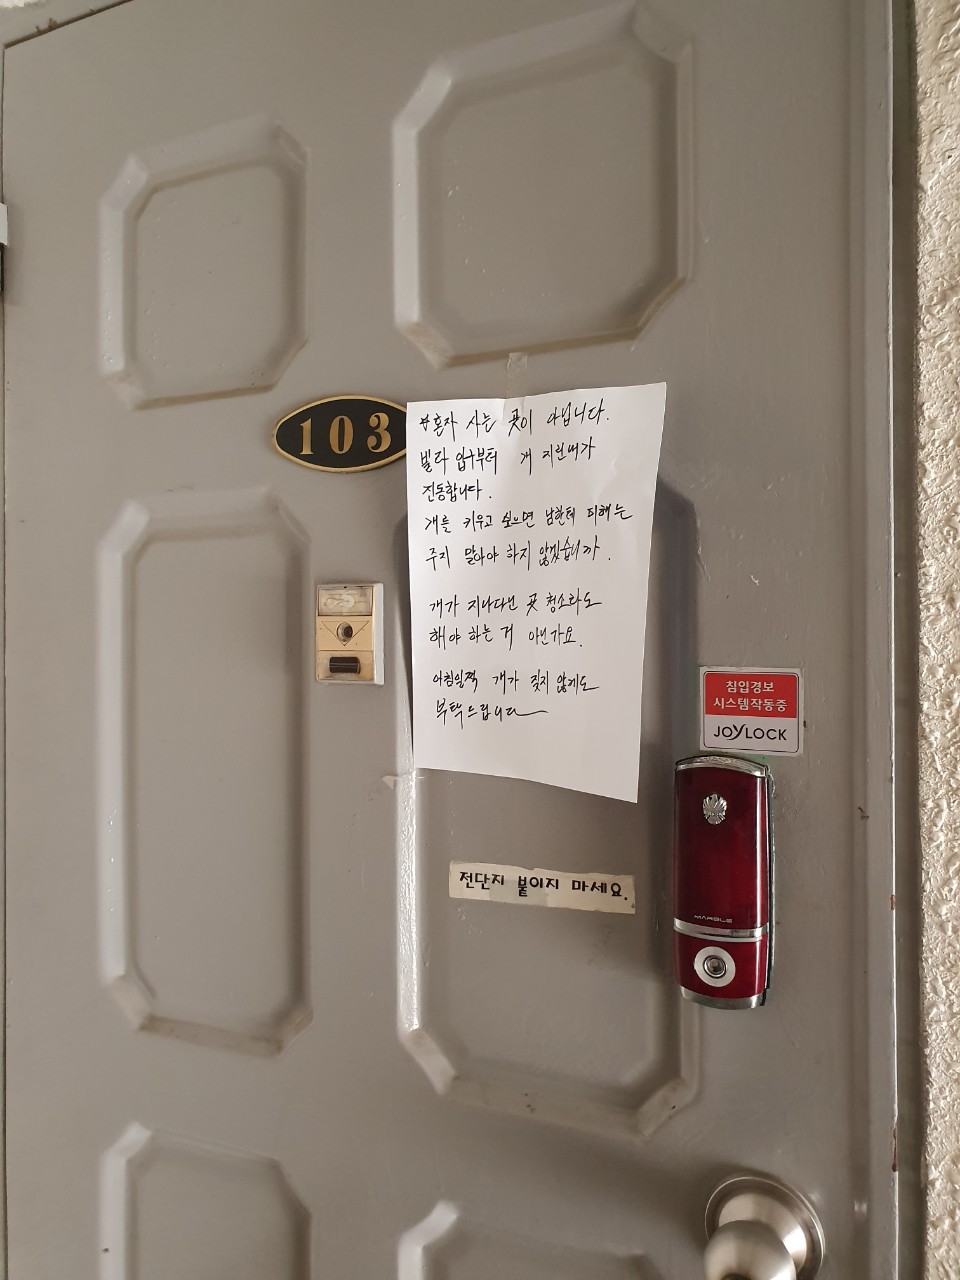 103
*혼자 사는 곳이 아닙니다.
빌라 입구부터 개 지린내가
진동합니다.
개를 키우고 싶으면 남한테 피해는
주지 말아야 하지 않겠습니까.
개가 지나다닌 곳 청소라도
해야 하는 거 아닌가요.
아침일찍 개가 짖지 않게도
부탁드립니다
침입경보
시스템작동중
JOYLOCK
전단지 붙이지 마세요.
MARBLE